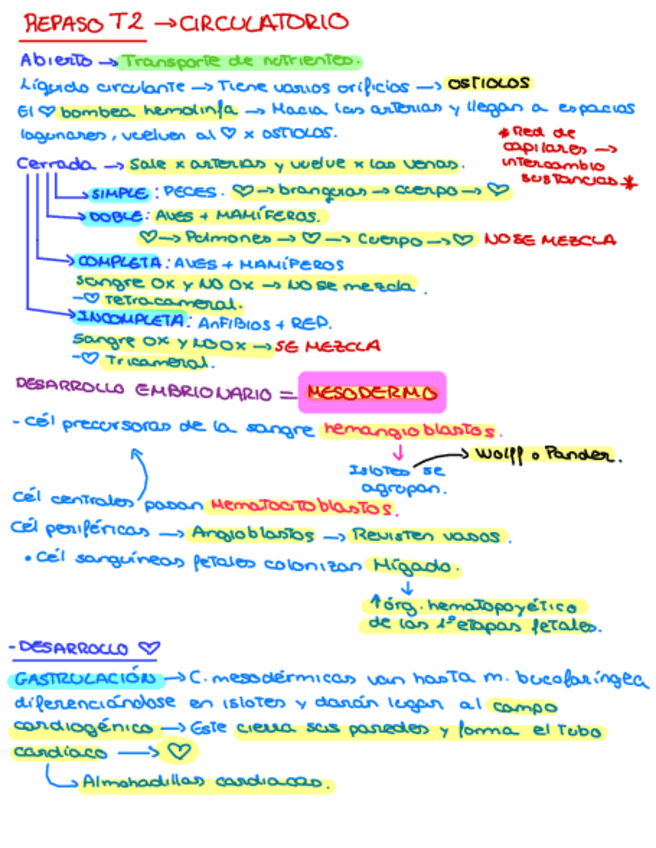 REPASO T2 → CIRCULATORIO
Abierto → Transporte de nutrientes.
Líquido circulante → Tiene varios orificios → OSTIOLOS
El ♡ bombea hemolinfa → Hacia las arterias y llegan a espacios
lagunares, vuelven al ♡ x OSTIOLOS.
* Red de
capilares →
intercambio
sustancias *
Cerrada → Sale x arterias y vuelve x las venas.
→ SIMPLE: PECES. ♡ → branquias → cuerpo → ♡
→ DOBLE: AVES + MAMÍFEROS.
♡ → Pulmones → ♡ → Cuerpo → ♡ NO SE MEZCLA
→ COMPLETA: AVES + MAMÍFEROS
Sangre OX y NO OX → NO se mezcla.
- ♡ Tetracameral.
→ INCOMPLETA: ANFIBIOS + REP.
Sangre OX y NO OX → SE MEZCLA
- ♡ Tricameral.
DESARROLLO EMBRIONARIO = MESODERMO
- Cél precursoras de la sangre hemangioblastos.
↓
Islotes se → Wolff o Pander.
agrupan.
Cél centrales pasan Hematocitoblastos.
Cél periféricas → Angioblastos → Revisten vasos.
• Cél sanguíneas fetales colonizan Hígado.
↓
↑ órg. hematopoyético
de las 1º etapas fetales.
- DESARROLLO ♡
GASTRULACIÓN → C. mesodérmicas van hasta m. bucofaríngea
diferenciándose en islotes y darán lugar al campo
cardiogénico → Este cierra sus paredes y forma el Tubo
cardíaco → ♡
→ Almohadillas cardiacas.